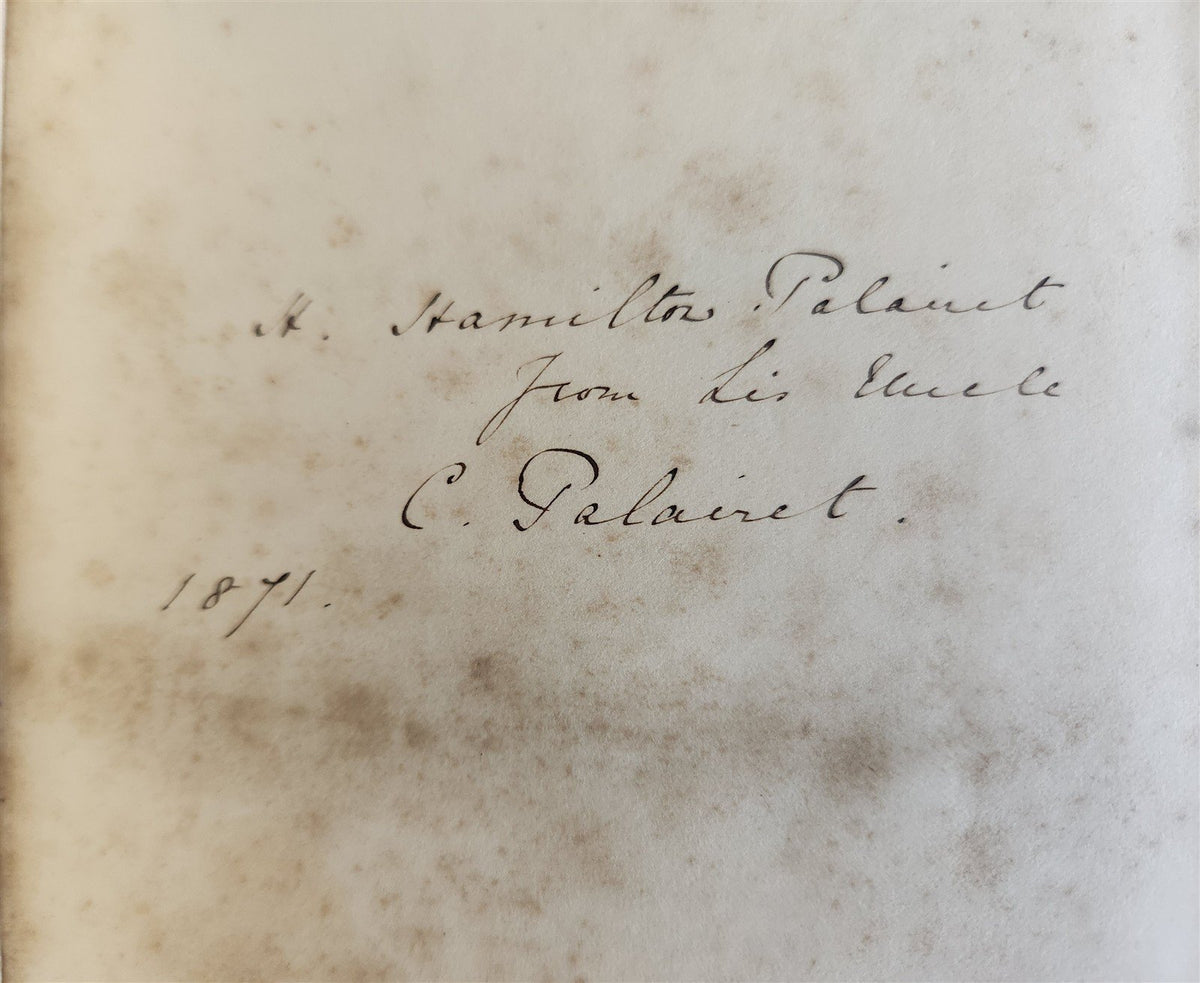 H. Hamilton Palairet
from his Uncle
C. Palairet.
1871.